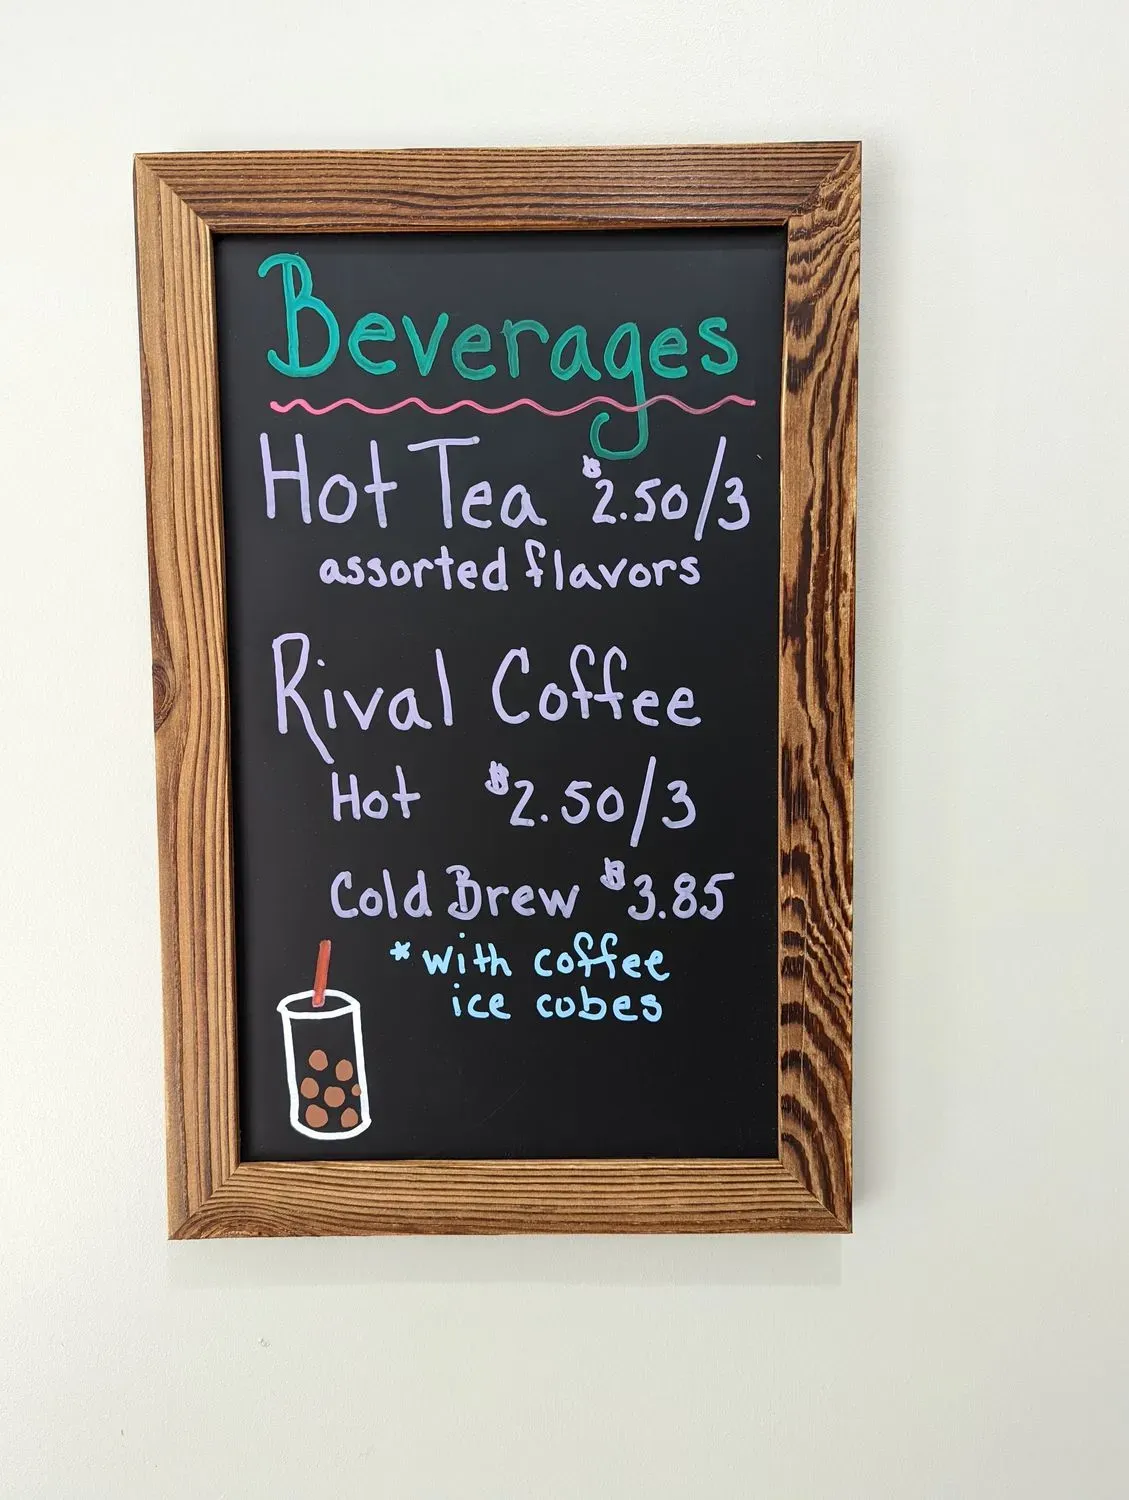 Beverages
Hot Tea $2.50/3
assorted flavors
Rival Coffee
Hot $2.50/3
Cold Brew $3.85
*with coffee
ice cubes